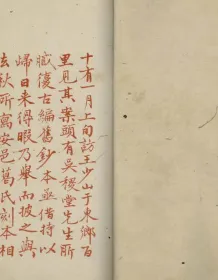 十有一月上旬訪王少山于東鄉百
里見其案頭有吳稷堂先生所
臧復古編舊鈔本亟借持以
歸日来得暇乃舉而披之與
弦秋所寫安邑葛氏刻本相